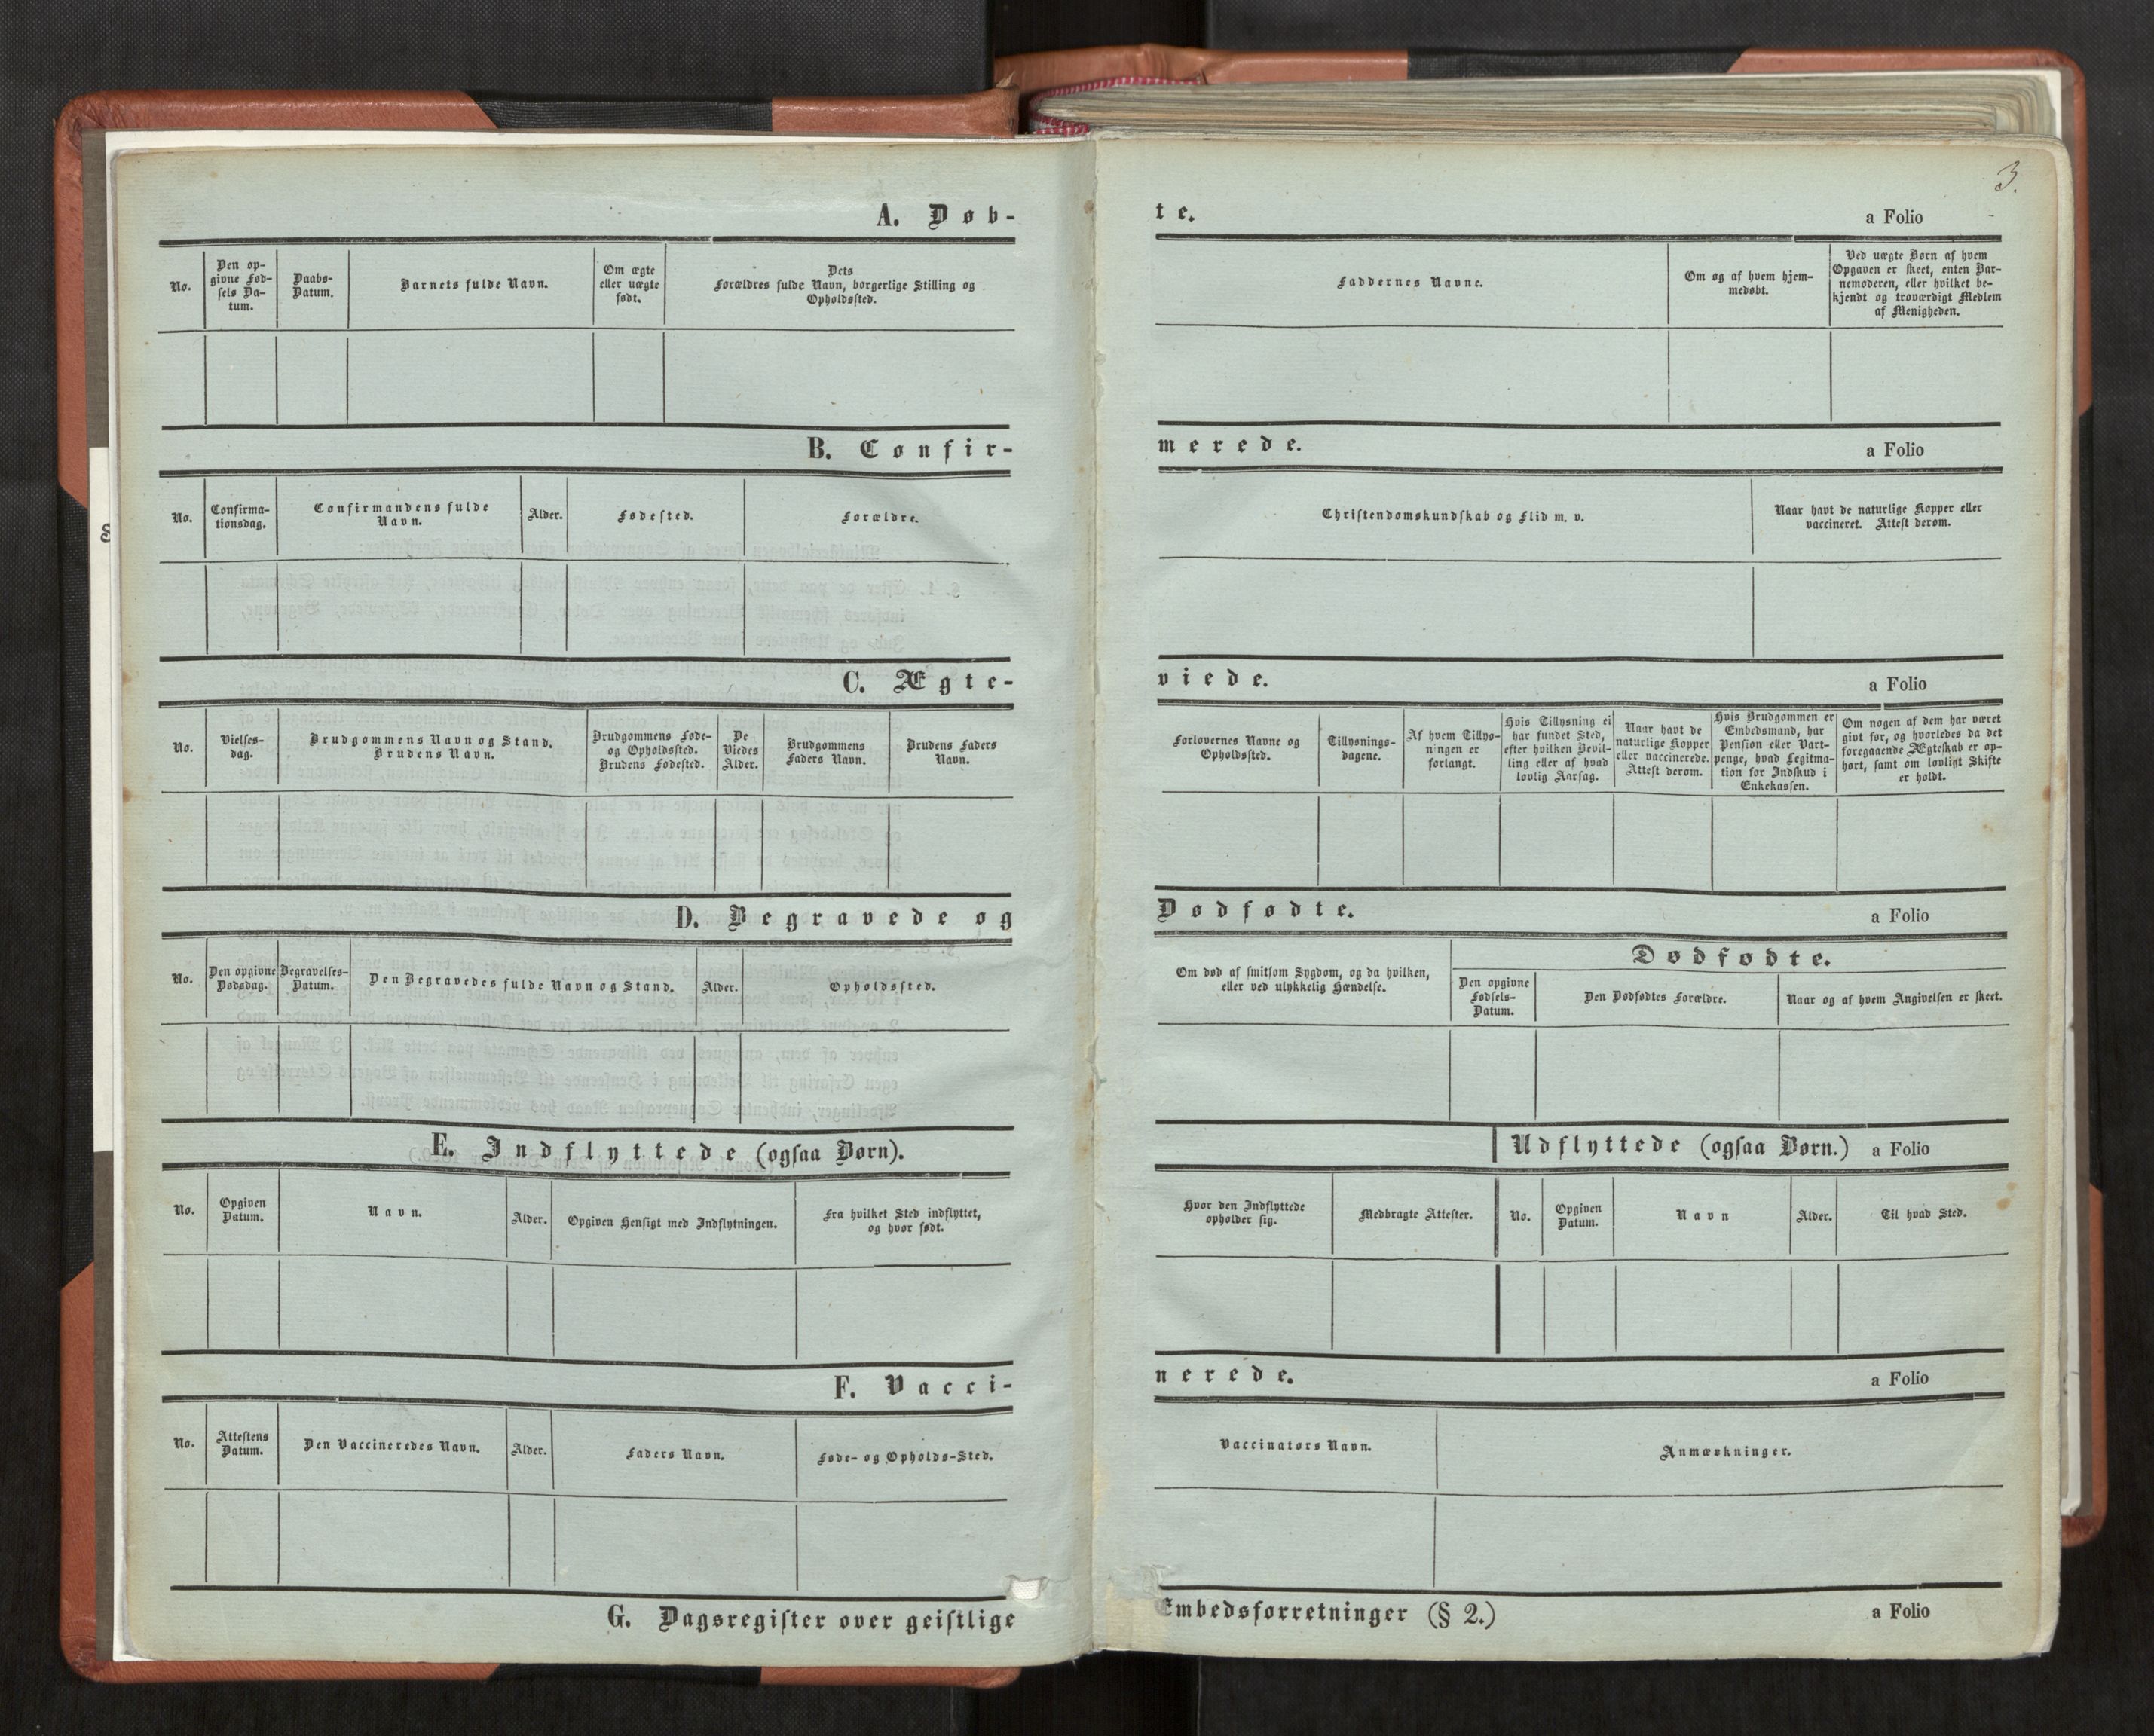 3.
A. Døb-
te.
a Folio
No.
Den op-
givne Fød-
sels Da-
tum.
Daabs-
Datum.
Barnets fulde Navn.
Om ægte
eller uægte
født.
Dets
Forældres fulde Navn, borgerlige Stilling og
Opholdssted.
Faddernes Navne.
Om og af hvem hjem-
medøbt.
Ved uægte Børn af hvem
Opgaven er skeet, enten Bar-
nemoderen, eller hvilket be-
kjendt og troværdigt Medlem
af Menigheden.
B. Confir-
merede.
a Folio
No.
Confirma-
tionsdag.
Confirmandens fulde
Navn.
Alder.
Fødested.
Forældre.
Christendomskundskab og Flid m. v.
Naar havt de naturlige Kopper eller
vaccineret. Attest derom.
C. Ægte-
viede.
a Folio
No.
Vielses-
dag.
Brudgommens Navn og Stand.
Brudens Navn.
Brudgommens Føde-
og Opholdssted.
Brudens Fødested.
De
Viedes
Alder.
Brudgommens
Faders Navn.
Brudens Faders
Navn.
Forlovernes Navne og
Opholdssted.
Tillysnings-
dagene.
Af hvem Tillys-
ningen er
forlangt.
Hvis Tillysning ei
har fundet Sted,
efter hvilken Bevil-
ling eller af hvad
lovlig Aarsag.
Naar havt de
naturlige Kopper
eller vaccinerede.
Attest derom.
Hvis Brudgommen er
Embedsmand, har
Pension eller Vart-
penge, hvad Legitima-
tion for Indskud i
Enkekassen.
Om nogen af dem har været
givt før, og hvorledes da det
foregaaende Ægteskab er op-
hørt, samt om lovligt Skifte
er holdt.
D. Begravede og
Dødfødte.
a Folio
No.
Den opgivne
Dødsdag.
Begravelses-
Datum.
Den Begravedes fulde Navn og Stand.
Alder.
Opholdssted.
Om død af smitsom Sygdom, og da hvilken,
eller ved ulykkelig Hændelse.
Dødfødte.
Den opgivne
Fødsels-
Datum.
Den Dødfødtes Forældre.
Naar og af hvem Angivelsen er skeet.
E. Indflyttede (ogsaa Børn).
Udflyttede (ogsaa Børn.)
a Folio
No.
Opgiven
Datum.
Navn.
Alder.
Opgiven Hensigt med Indflytningen.
Fra hvilket Sted indflyttet,
og hvor født.
Hvor den Indflyttede
opholder sig.
Medbragte Attester.
No.
Opgiven
Datum.
Navn
Alder.
Til hvad Sted.
F. Vacci-
nerede.
a Folio
No.
Attestens
Datum.
Den Vaccineredes Navn.
Alder.
Faders Navn.
Føde- og Opholds-Sted.
Vaccinators Navn.
Anmærkninger.
G. Dagsregister over geistlige
Embedsforretninger (§ 2.)
a Folio